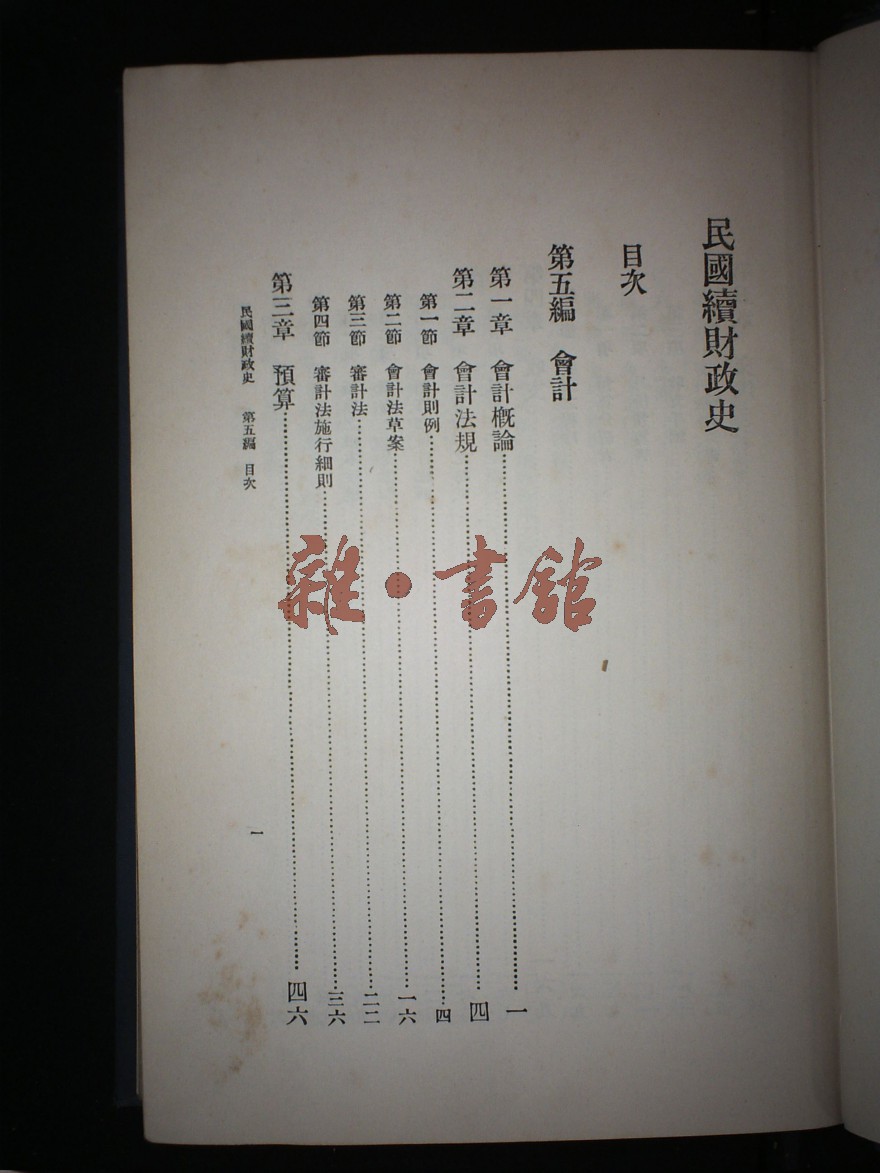 民國續財政史
目次
第五編 會計
第一章 會計槪論…………一
第二章 會計法規…………四
第一節 會計則例…………四
第二節 會計法草案…………一六
第三節 審計法…………二二
第四節 審計法施行細則…………三六
第三章 預算…………四六
民國續財政史 第五編 目次
一
雜·書館